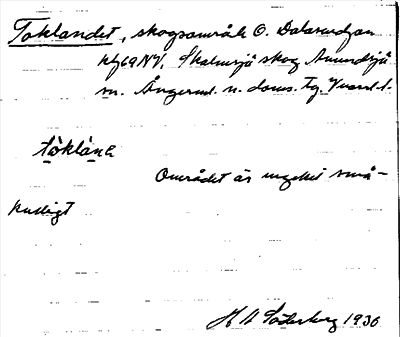 Toklandet, skogsområde O. Dalasundjan
hf 69 NV, Skalmsjö skog Anundsjö
sn. Ångerml. n. doms. Tg.
tòklàne
Området är mycket små-
kulligt
H A Söderberg 1936